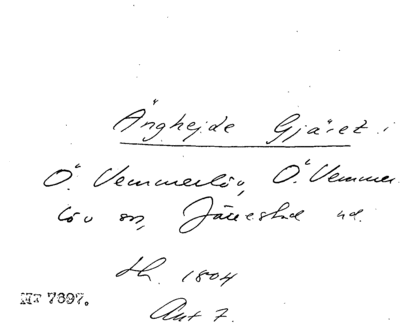 Änghejde Gjäret i
Ö. Vemmerlöv, Ö. Vemmer
löv sn, Järrestad hd.
Sk. 1804
Akt 7.
MF 7697.